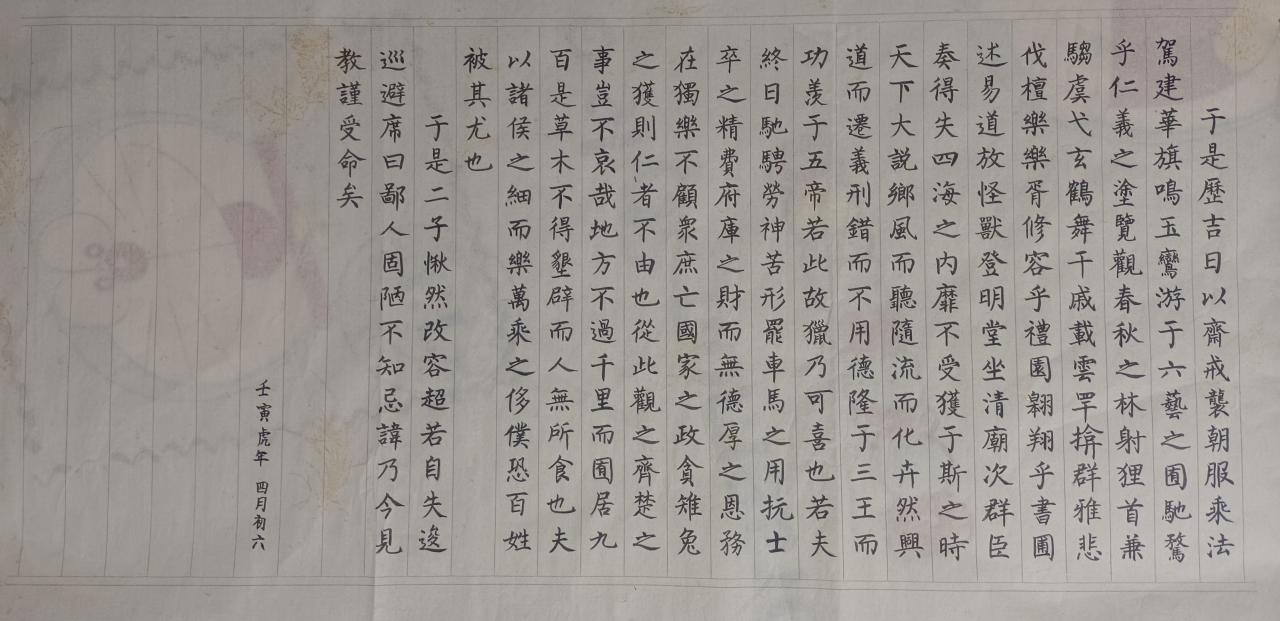 于是歷吉日以齋戒襲朝服乘法
駕建華旗鳴玉鸞游于六藝之囿馳騖
乎仁義之塗覽觀春秋之林射狸首兼
騶虞弋玄鶴舞干戚載雲罕揜群雅悲
伐檀樂樂胥修容乎禮園翱翔乎書圃
述易道放怪獸登明堂坐清廟次群臣
奏得失四海之內靡不受獲于斯之時
天下大説鄉風而聽隨流而化卉然興
道而遷義刑錯而不用德隆于三王而
功羨于五帝若此故獵乃可喜也若夫
終日馳騁勞神苦形罷車馬之用抏士
卒之精費府庫之財而無德厚之恩務
在獨樂不顧衆庶亡國家之政貪雉兔
之獲則仁者不由也從此觀之齊楚之
事豈不哀哉地方不過千里而囿居九
百是草木不得墾辟而人無所食也夫
以諸侯之細而樂萬乘之侈僕恐百姓
被其尤也
于是二子愀然改容超若自失逡
巡避席曰鄙人固陋不知忌諱乃今見
教謹受命矣
壬寅虎年 四月初六